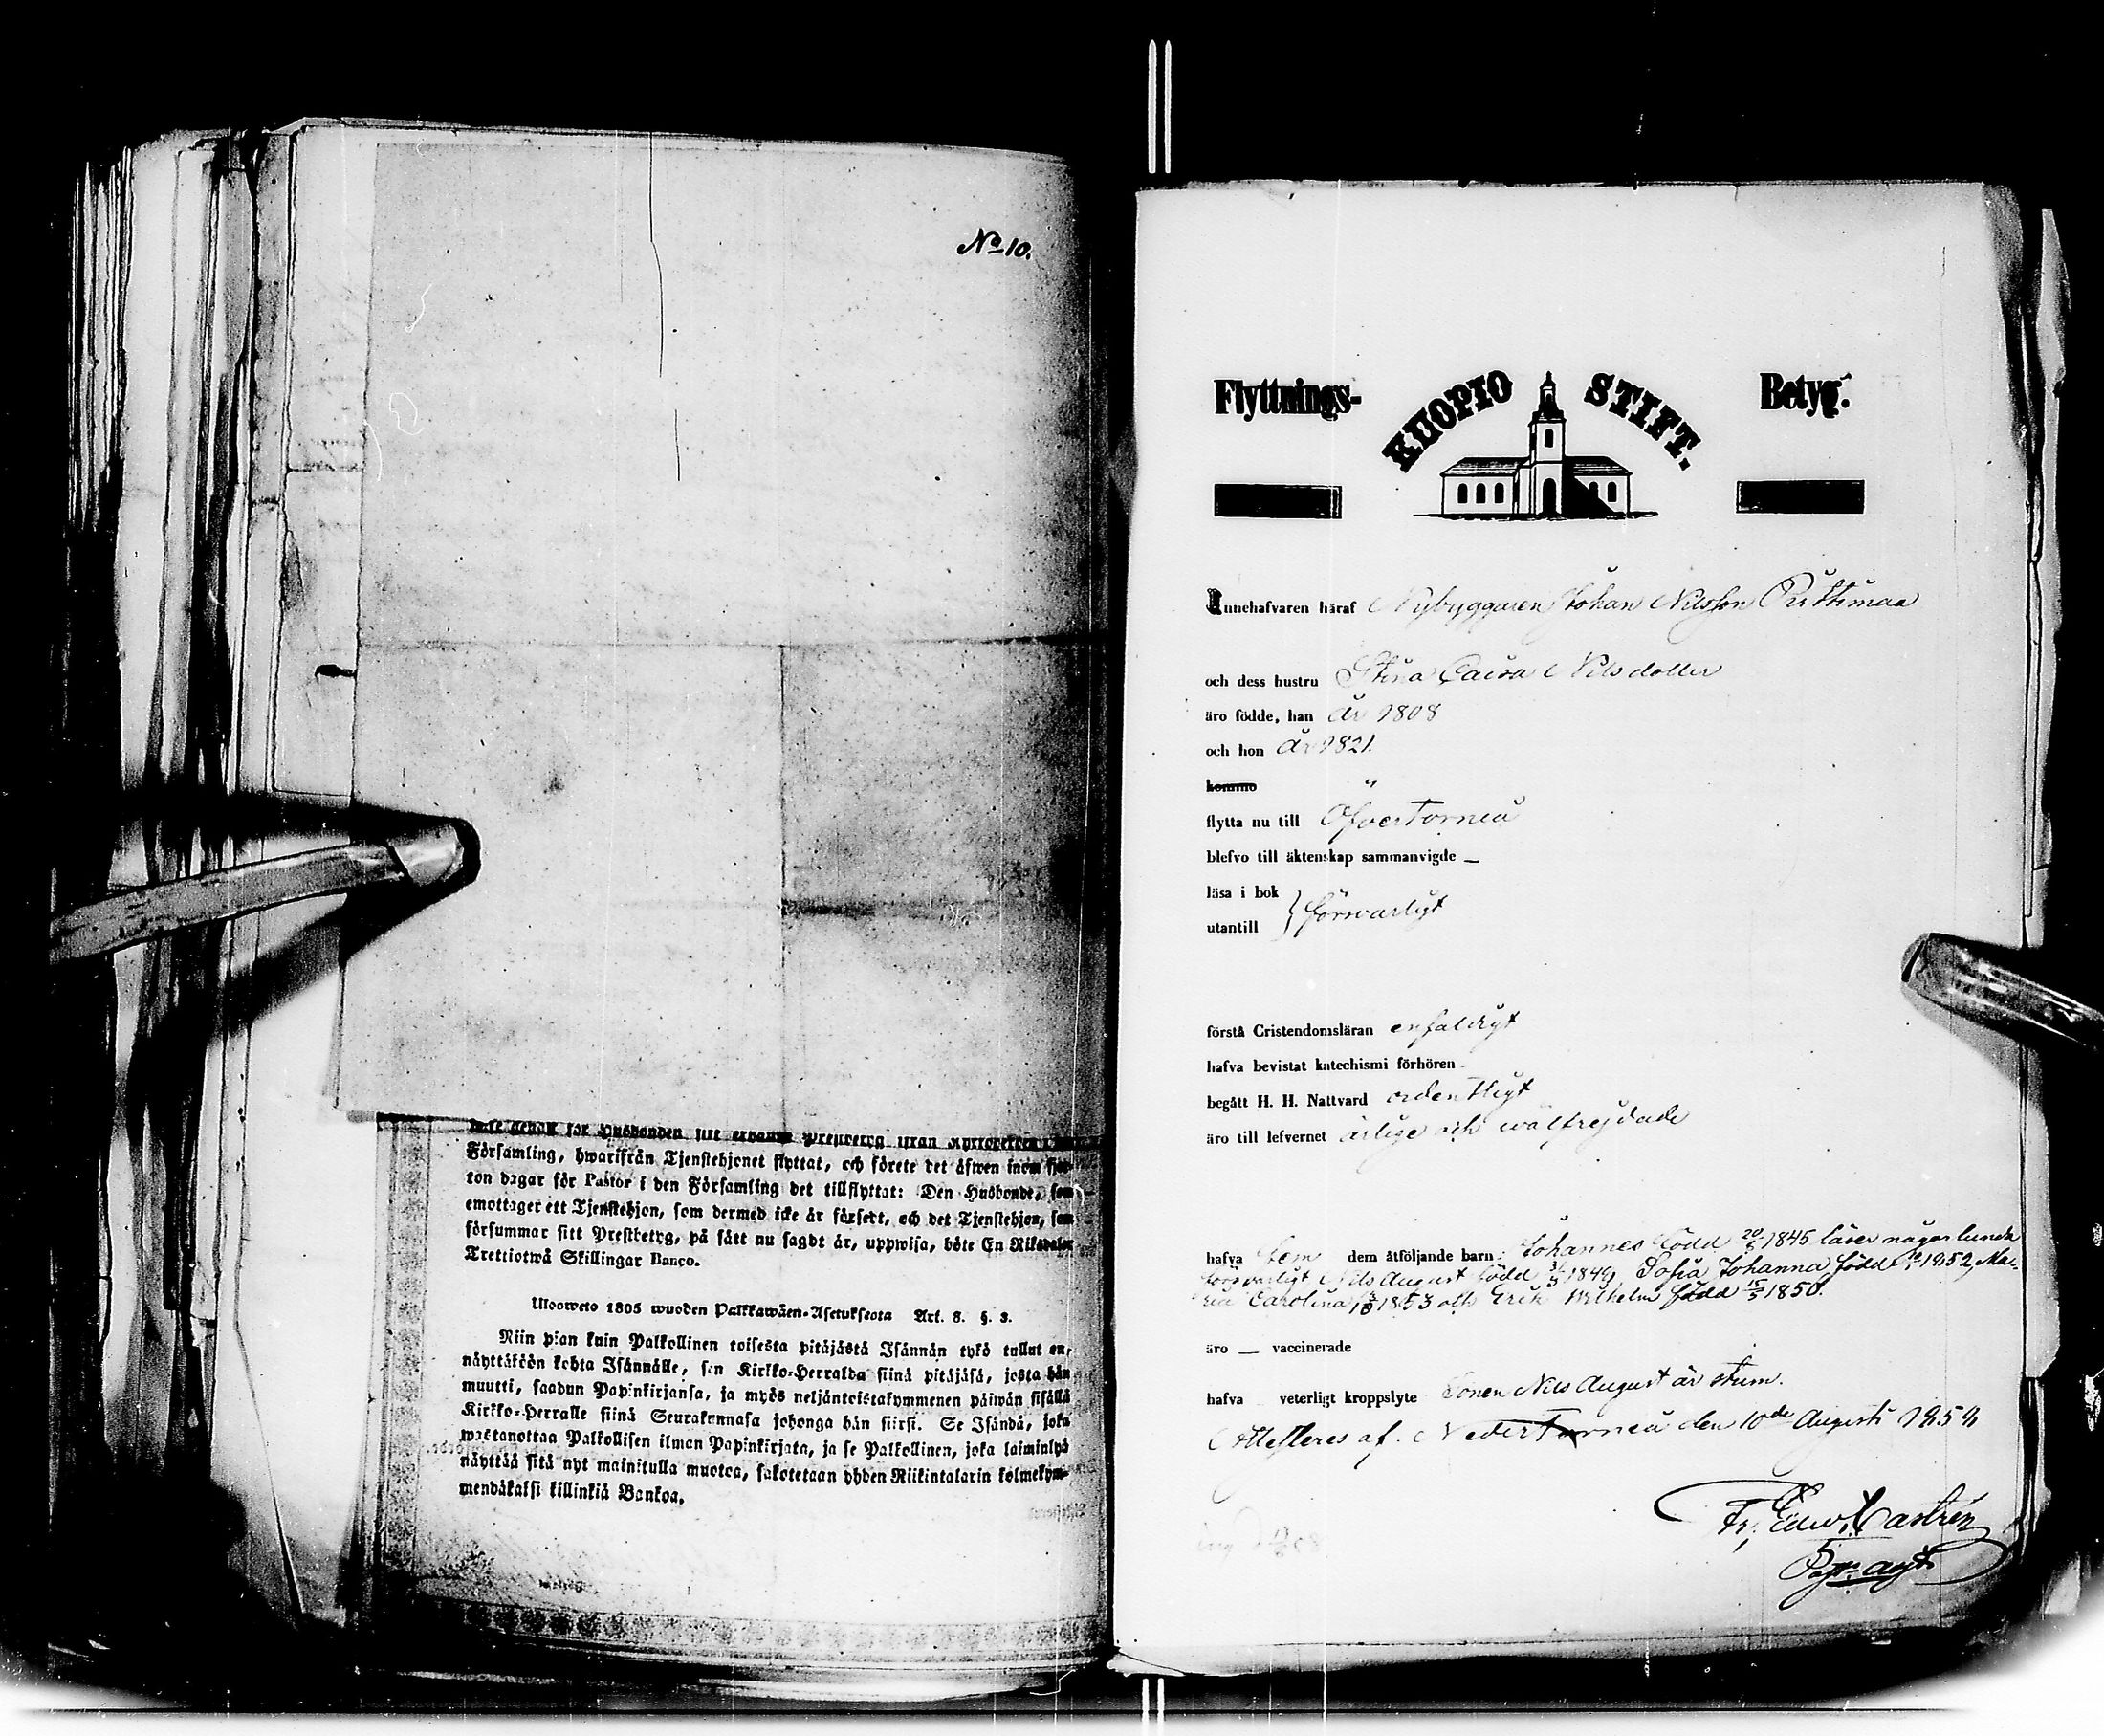 No 10.
Församling, hwarifrån Tjenstehjonet flyttat, och förete det äfwen inom fjor-
ton dagar för Pastor i den Församling det tillflyttat: Den Husbonde, som
emottager ett Tjenstehjon, som dermed icke är försedt, och det Tjenstehjon, som
försummar sitt Prestbetyg, på sätt nu sagdt är, uppwisa, böte En Riksdaler
Trettiotwå Skillingar Banco.
Ulosweto 1805 wuoden Palkkawäen-Asetuksesta Art. 8. §. 3.
Niin pian kuin Palkollinen toisesta pitäjästä Isännän tykö tullut on,
näyttäköön kohta Isännälle, sen Kirkko-Herralda siinä pitäjäsä, josta hän
muutti, saadun Papinkirjansa, ja myös neljäntoistakymmenen päiwän sisällä
Kirkko-Herralle siinä Seurakunnasa johonga hän siirsi. Se Isändä, joka
wastanottaa Palkollisen ilman Papinkirjata, ja se Palkollinen, joka laiminlyö
näyttää sitä nyt mainitulla muotoa, sakotetaan yhden Riikintalarin kolmekym-
mendäkaksi killinkiä Bankoa.
Flyttnings- KUOPIO STIFT. Betyg.
Innehafvaren häraf Nybyggaren Johan Nilsson
och dess hustru Stina Caisa Nilsdotter
äro födde, han år 1808
och hon år 1821.
kommo "
flytta nu till Öfvertorneå
blefvo till äktenskap sammanvigde —
läsa i bok
utantill } försvarligt
förstå Cristendomsläran enfaldigt
hafva bevistat katechismi förhören -
begått H. H. Nattvard ordentligt
äro till lefvernet ärlige och wälfrejdade
hafva fem dem åtföljande barn: Johannes född 20/ 1845 läser någorlunda
försvarligt Nils August född 1849, Sofia Johanna född 1852, Ma-
ria Carolina 1853 och Erik Wilhelm född 15/5 1850.
äro — vaccinerade
hafva veterligt kroppslyte Sonen Nils August är stum.
Attesteres af. Neder Torneå den 10de Augusti 1858
Fr. Edw. Castrén